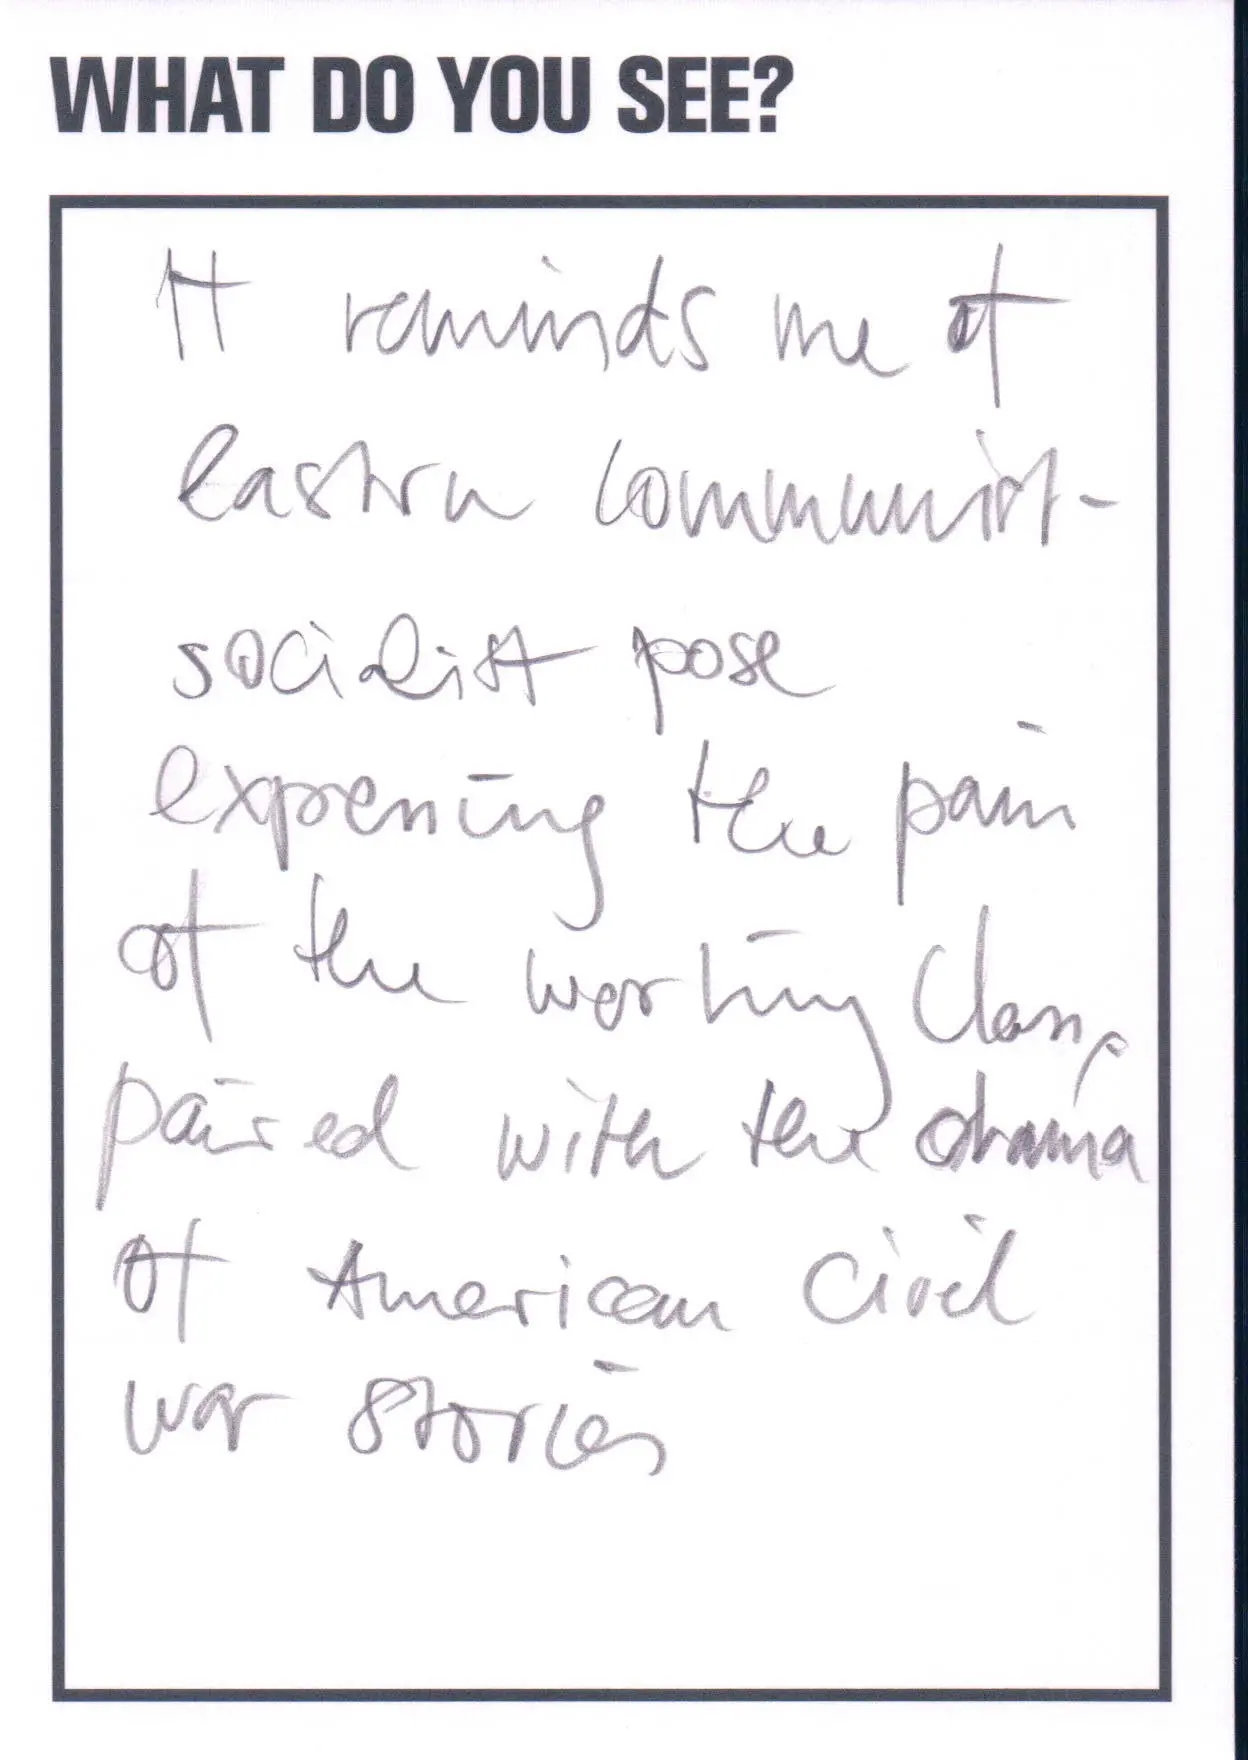 WHAT DO YOU SEE?
It reminds me of
eastern communist-
socialist pose
expressing the pain
of the working class,
paired with the drama
of American civil
war stories